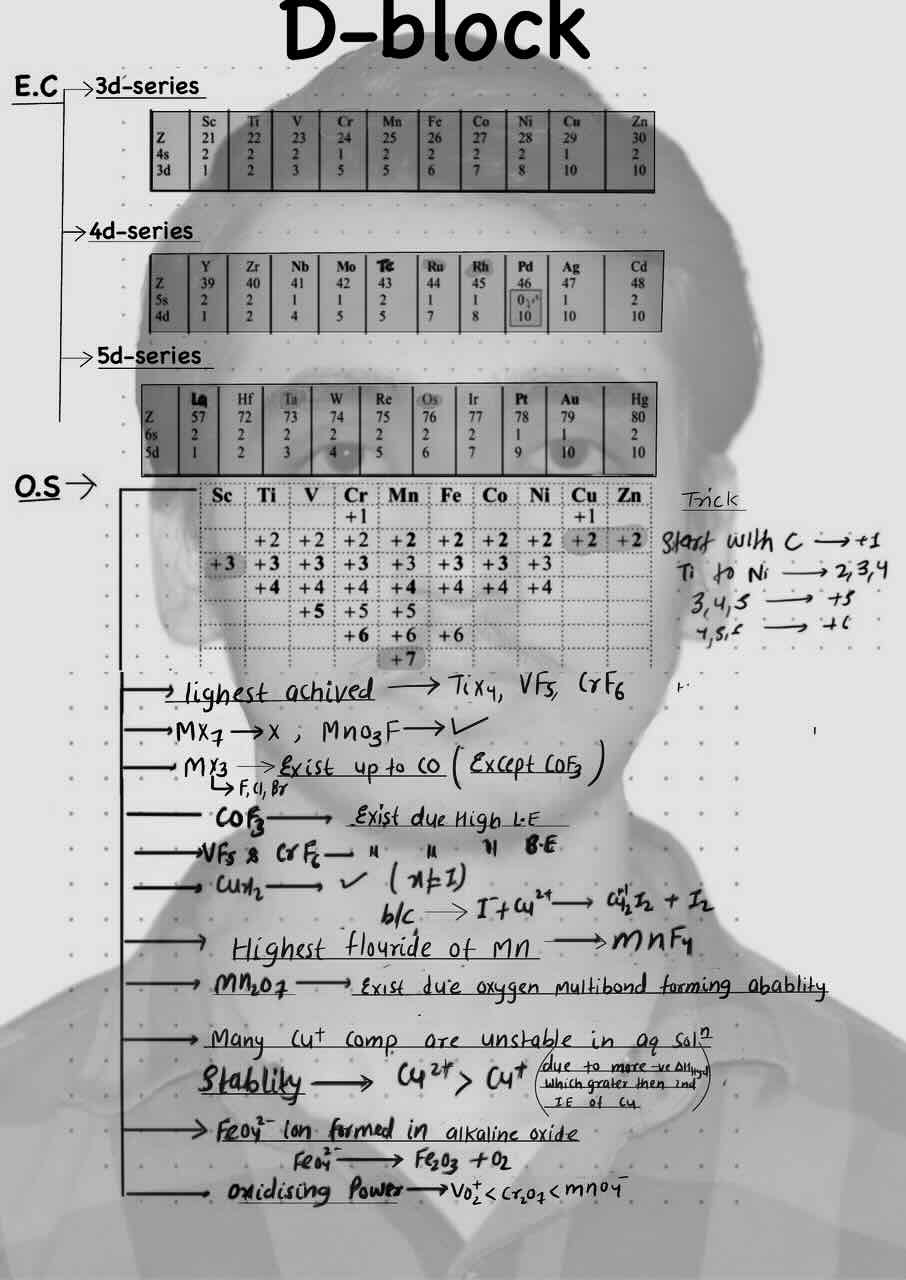 D-block
E.C → 3d-series
Sc Ti V Cr Mn Fe Co Ni Cu Zn
Z 21 22 23 24 25 26 27 28 29 30
4s 2 2 2 1 2 2 2 2 1 2
3d 1 2 3 5 5 6 7 8 10 10
→ 4d-series
Y Zr Nb Mo Tc Ru Rh Pd Ag Cd
Z 39 40 41 42 43 44 45 46 47 48
5s 2 2 1 1 2 1 1 0 1 2
4d 1 2 4 5 5 7 8 10 10 10
→ 5d-series
La Hf Ta W Re Os Ir Pt Au Hg
Z 57 72 73 74 75 76 77 78 79 80
6s 2 2 2 2 2 2 2 1 1 2
5d 1 2 3 4 5 6 7 9 10 10
O.S →
Sc Ti V Cr Mn Fe Co Ni Cu Zn
+1 +1
+2 +2 +2 +2 +2 +2 +2 +2 +2
+3 +3 +3 +3 +3 +3 +3 +3
+4 +4 +4 +4 +4 +4 +4
+5 +5 +5
+6 +6 +6
+7
Trick
Start with C → +1
Ti to Ni → 2,3,4
3,4,5 → +5
4,5,6 → +6
→ highest achived → TiX4, VF5, CrF6
→ MX7 → X ; MnO3F → ✓
→ MX3 → Exist up to CO (Except COF3)
↳ F, Cl, Br
COF3 → Exist due High L.E
→ VF5 & CrF6 — " " " B.E
→ CuX2 → ✓ (x≠I)
b/c → I⁻ + Cu²⁺ → Cu₂⁺¹I2 + I2
→ Highest flouride of Mn → MnF4
→ Mn2O7 → Exist due oxygen multibond forming abablity
→ Many Cu⁺ comp are unstable in aq solⁿ
Stablity → Cu²⁺ > Cu⁺ (due to more -ve ΔHhyd
which grater then 2nd
IE of Cu)
→ FeO4²⁻ Ion formed in alkaline oxide
FeO4²⁻ → Fe2O3 + O2
→ Oxidising Power → VO2⁺ < Cr2O7 < MnO4⁻